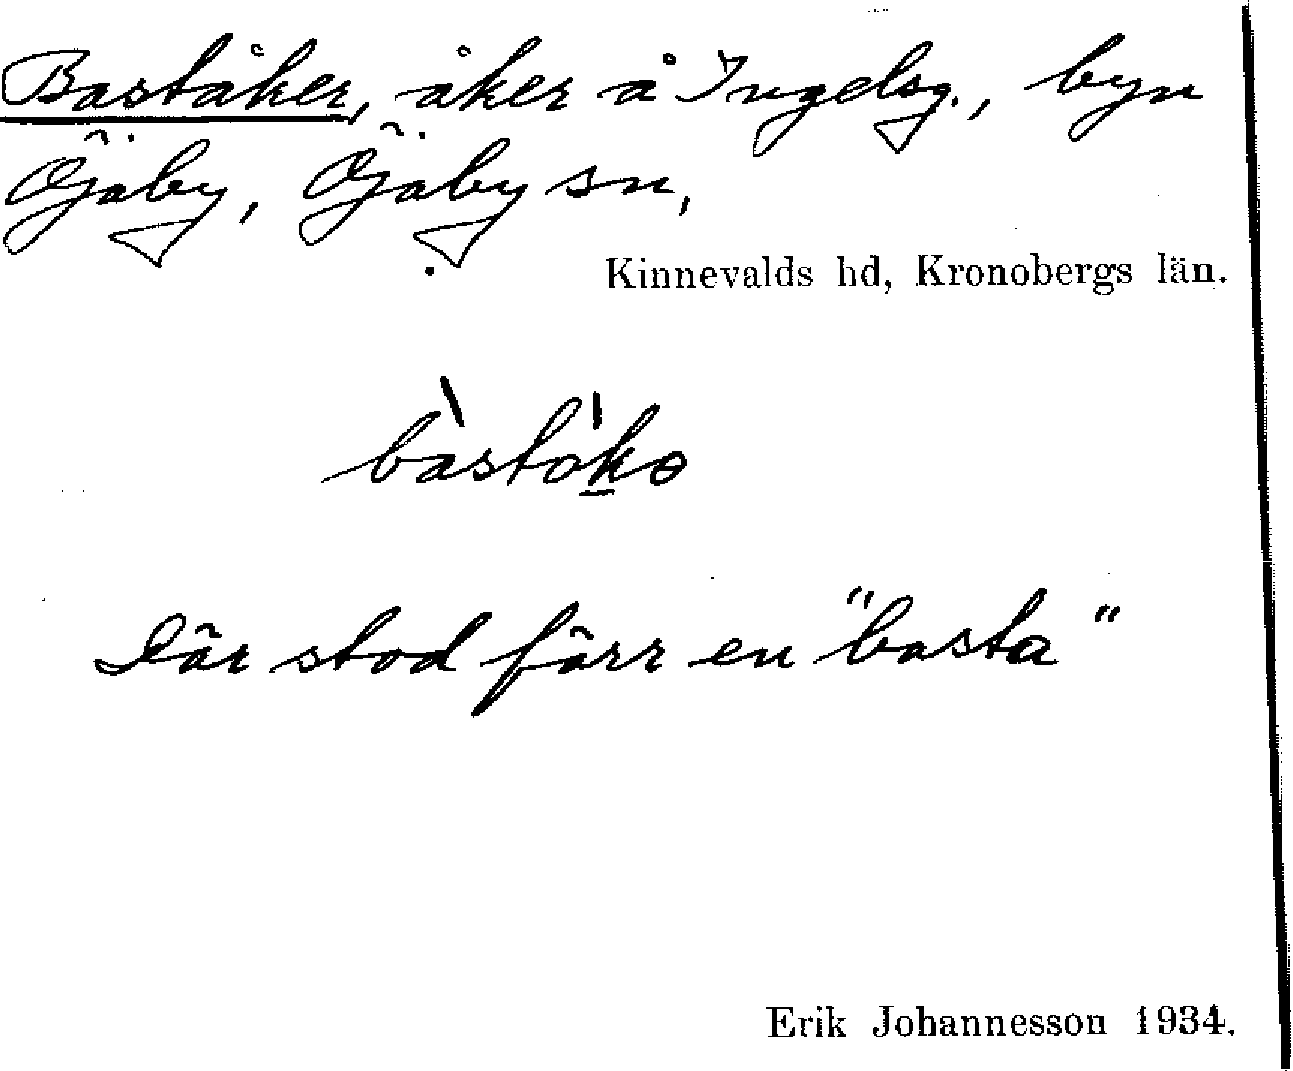 Baståker, åker å Ingelsg., byn
Öjaby, Öjaby sn,
Kinnevalds hd, Kronobergs län.
Där stod förr en "basta"
Erik Johannesson 1934.